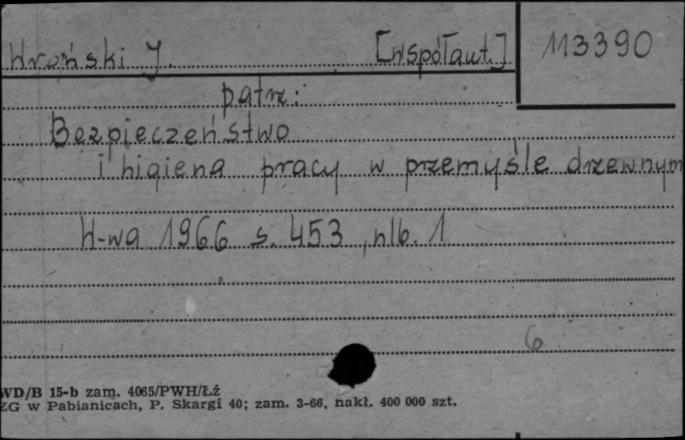 Wroński J. [współaut.] 113390
patrz:
Bezpieczeństwo
i higiena pracy w przemyśle drzewnym
W-wa 1966 s. 453, nlb. 1
6
WD/B 15-b zam. 4065/PWH/Łź
ZG w Pabianicach, P. Skargi 40; zam. 3-66, nakł. 400 000 szt.